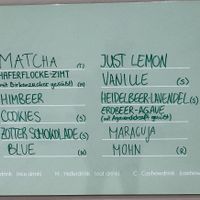 MATCHA (T)
HAFERFLOCKE-ZIMT
(mit Birkenzucker gesüßt) (H)
HIMBEER
COOKIES (S)
ZOTTER SCHOKOLADE (S)
BLUE (H)
JUST LEMON
VANILLE (S)
HEIDELBEER-LAVENDEL (S)
ERDBEER-AGAVE
(mit Agavendicksaft gesüßt)
MARACUJA
MOHN (S)
H. Haferdrink (oat drink)
C. Cashewdrink